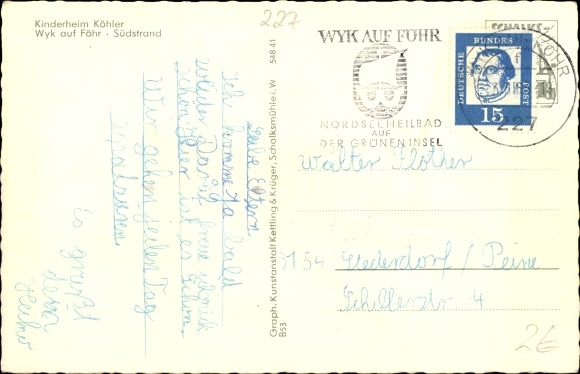 Kinderheim Köhler
Wyk auf Föhr · Südstrand
227
WYK AUF FÖHR
NORDSEEHEILBAD
AUF
DER GRÜNEN INSEL
DEUTSCHE BUNDESPOST
15
227
Graph. Kunstanstalt Kettling & Krüger, Schalksmühle i.W 548 41
B53
Liebe Eltern
Ich komme ja bald
wieder Darauf freue ich mich
schon Hier ist es schön.
Wir gehen jeden Tag
spatzieren
Es grüßt
Walter Flother
3154 Stederdorf / Peine
Schillerstr. 4
2€